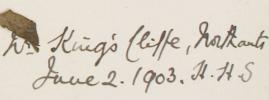 Nr. King's Cliffe, Northants
June 2. 1903. H. H. S